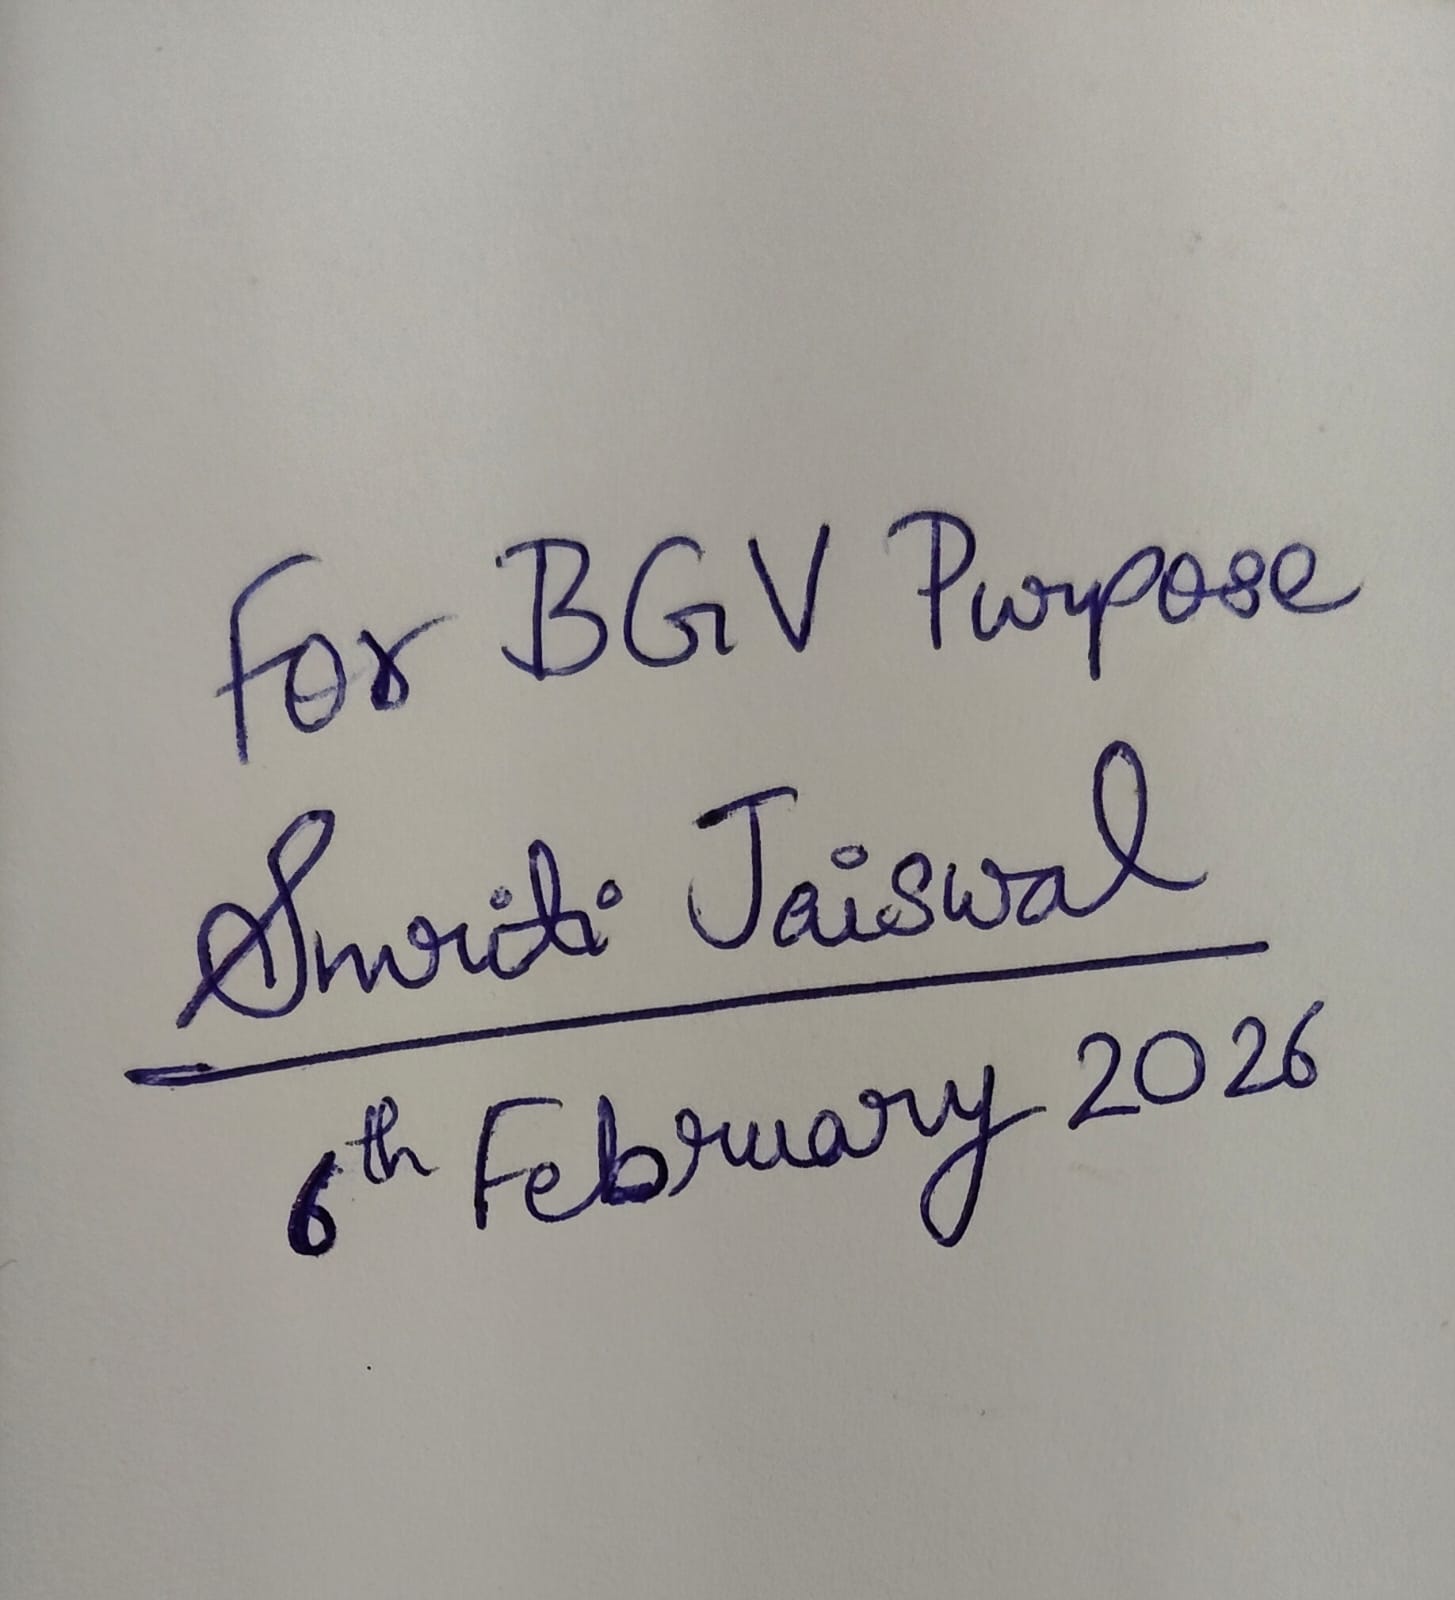 For BGV Purpose
Smriti Jaiswal
6th February 2026